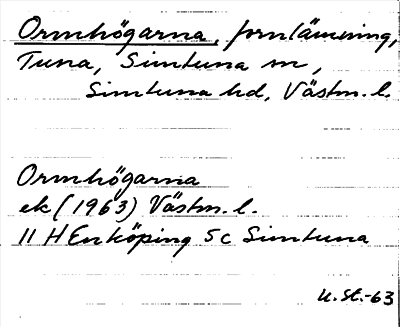 Ormhögarna, fornlämning,
Tuna, Simtuna sn,
Simtuna hd, Västm. l.
Ormhögarna
ek (1963) Västm. l.
11 H Enköping 5c Simtuna
U. St.-63